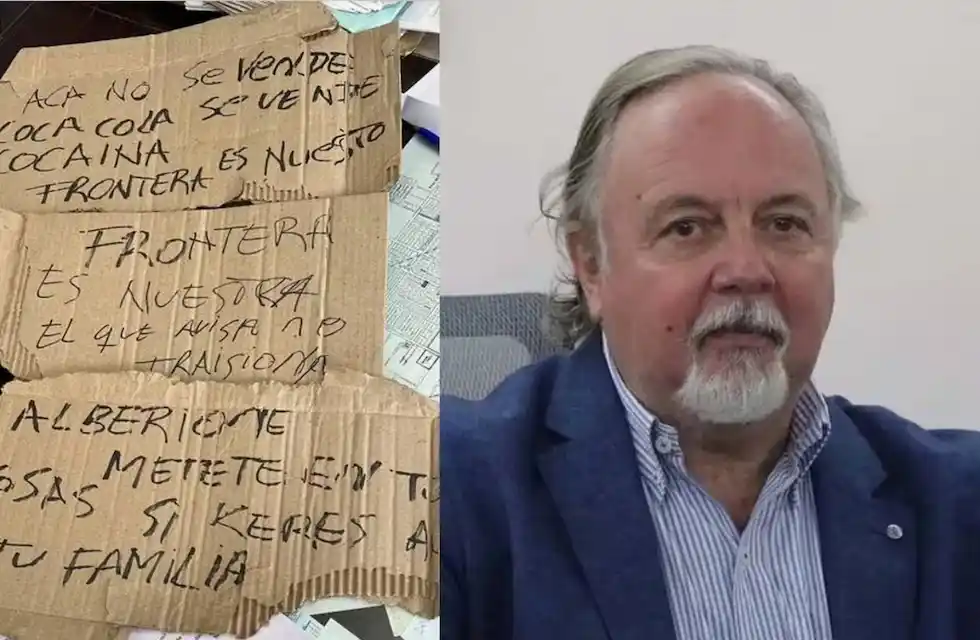 ACA NO SE VENDE
COCA COLA SE VENDE
COCAINA ES NUESTO
FRONTERA
FRONTERA
ES NUESTRA
EL QUE AVISA NO
TRAISIONA
ALBERIONE
OSAS METETE EN TU
SI KERES A
TU FAMILIA